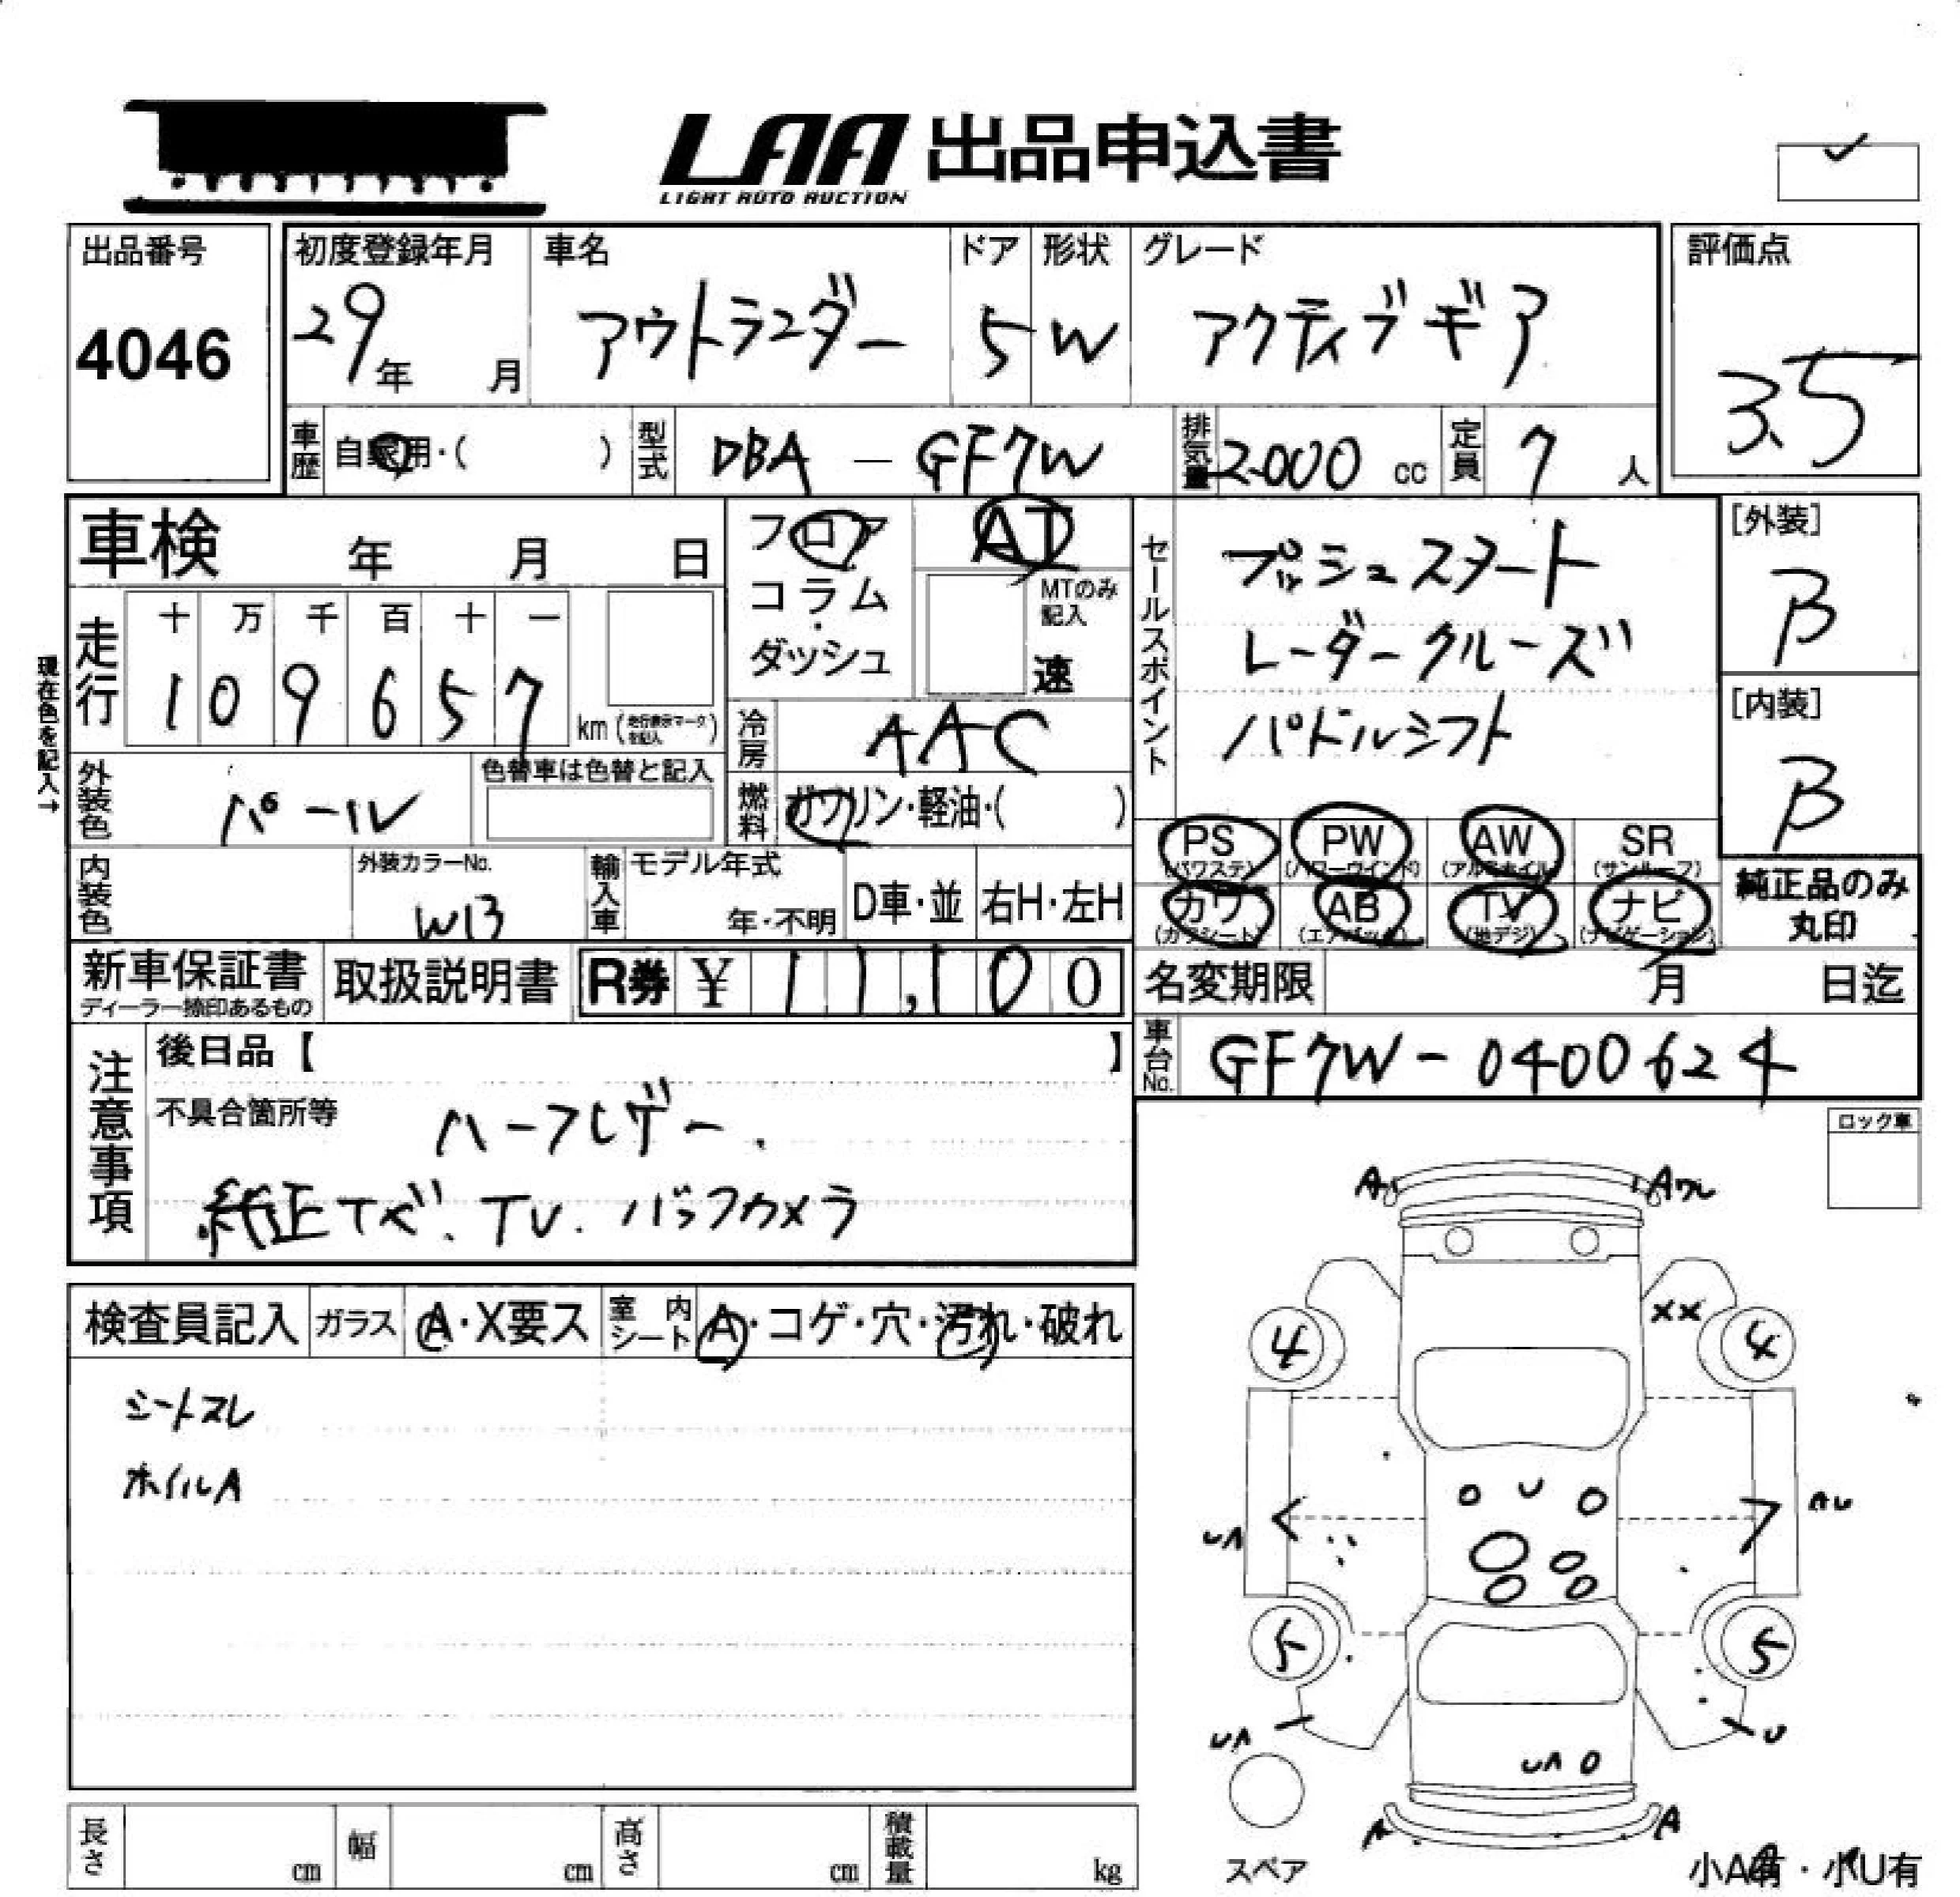 LAA 出品申込書
LIGHT AUTO AUCTION
出品番号
4046
初度登録年月
29年 月
車名
アウトランダー
ドア
5
形状
W
グレード
アクティブギア
評価点
3.5
車歴 自家用・( )
型式 DBA - GF7W
排気量 2000 cc
定員 7 人
車検 年 月 日
フロア
コラム
・
ダッシュ
AT
MTのみ記入
速
セールスポイント
プッシュスタート
レーダークルーズ
パドルシフト
[外装]
B
[内装]
B
現在色を記入→
走行
十 万 千 百 十 一
1 0 9 6 5 7
km (走行表示マークを記入)
冷房 AAC
外装色 パール
色替車は色替と記入
燃料 ガソリン・軽油・( )
PS (パワステ) PW (パワーウインド) AW (アルミホイル) SR (サンルーフ)
カワ (カワシート) AB (エアバック) TV (地デジ) ナビ (ナビゲーション)
純正品のみ
丸印
内装色
外装カラーNo.
W13
輸入車
モデル年式
年・不明
D車・並
右H・左H
新車保証書
ディーラー捺印あるもの
取扱説明書
R券 ¥ 11,100
名変期限 月 日迄
車台No. GF7W-0400624
注意事項
後日品【 】
不具合箇所等
ハーフレザー.
純正ナビ. TV. バックカメラ
ロック車
検査員記入
ガラス A・X要ス
室内シート A・コゲ・穴・汚れ・破れ
シートスレ
ホイルA
A
A
XX
4
4
U
UA
AU
5
5
UA
U
UA
A
A
スペア
小A有・小U有
長さ cm
幅 cm
高さ cm
積載量 kg